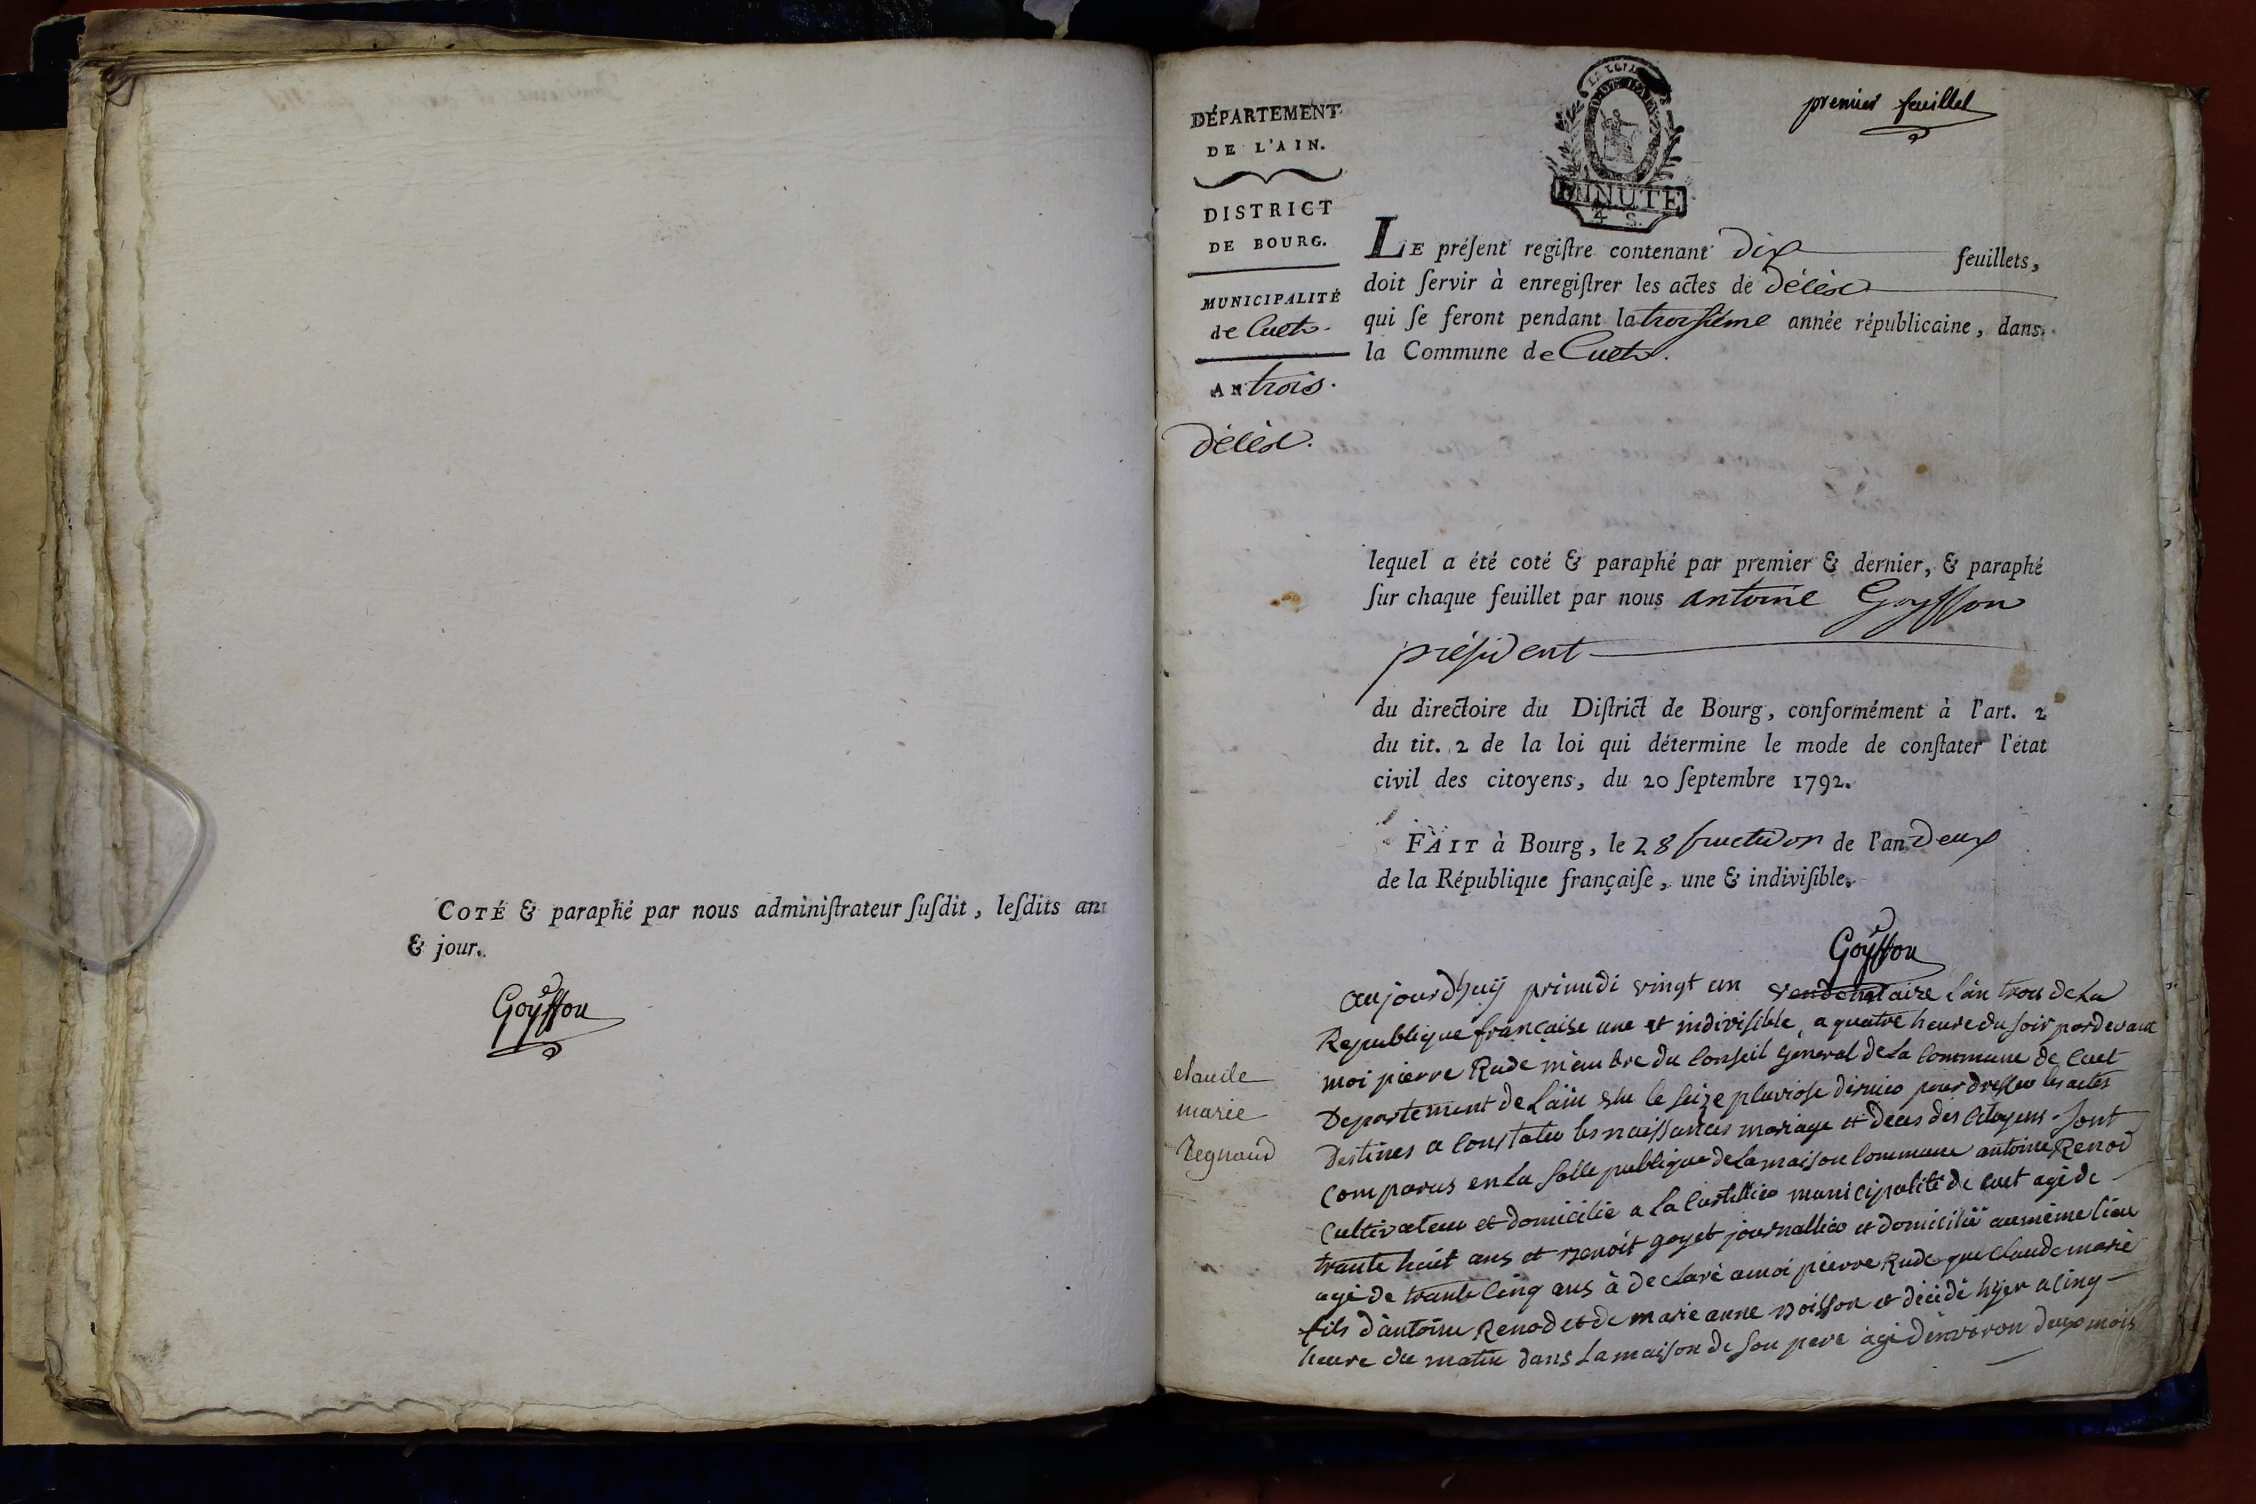 COTÉ & paraphé par nous adminiſtrateur ſuſdit, leſdits an
& jour.
Goyffon
DÉPARTEMENT
DE L'AIN.
DISTRICT
DE BOURG.
MUNICIPALITÉ
de Cuet.
AN trois.
décès.
LA LOI
MINUTE
4 S.
premier feuillet
LE préſent regiſtre contenant dix feuillets,
doit ſervir à enregiſtrer les actes de décès
qui ſe feront pendant la troiſiéme année républicaine, dans
la Commune de Cuet.
lequel a été coté & paraphé par premier & dernier, & paraphé
ſur chaque feuillet par nous antoine Goyffon
préſident
du directoire du Diſtrict de Bourg, conformément à l'art. 2
du tit. 2 de la loi qui détermine le mode de conſtater l'état
civil des citoyens, du 20 ſeptembre 1792.
FAIT à Bourg, le 28 fructidor de l'an deux
de la République françaiſe, une & indiviſible.
Goyffon
claude
marie
Regnaud
aujourdhuÿ primidi vingt un vendemiaire L'an trois de La
Republique francaise une et indivisible, a quatre heure du soir pardevant
moi pierre Rude membre du Conseil géneral de La Commune de Cuet
Departement de L'ain elu le seize pluviose dernier pour dresser les actes
Destines a Constater les naissances mariage et deces des Citoyens. Sont
Comparus en La Salle publique de La maison Commune antoine Renod
Cultivateur et domicilié a La municipalité de Cuet agé de
trante huit ans et Benoit goyet journallier et domicilié au même lieu
agé de trante Cinq ans à declaré a moi pierre Rude que Claude marie
fils d'antoine Renod et de marie anne Boisson et décédé hÿer a Cinq
heure du matin dans La maison de son pere agé d'environ deux mois